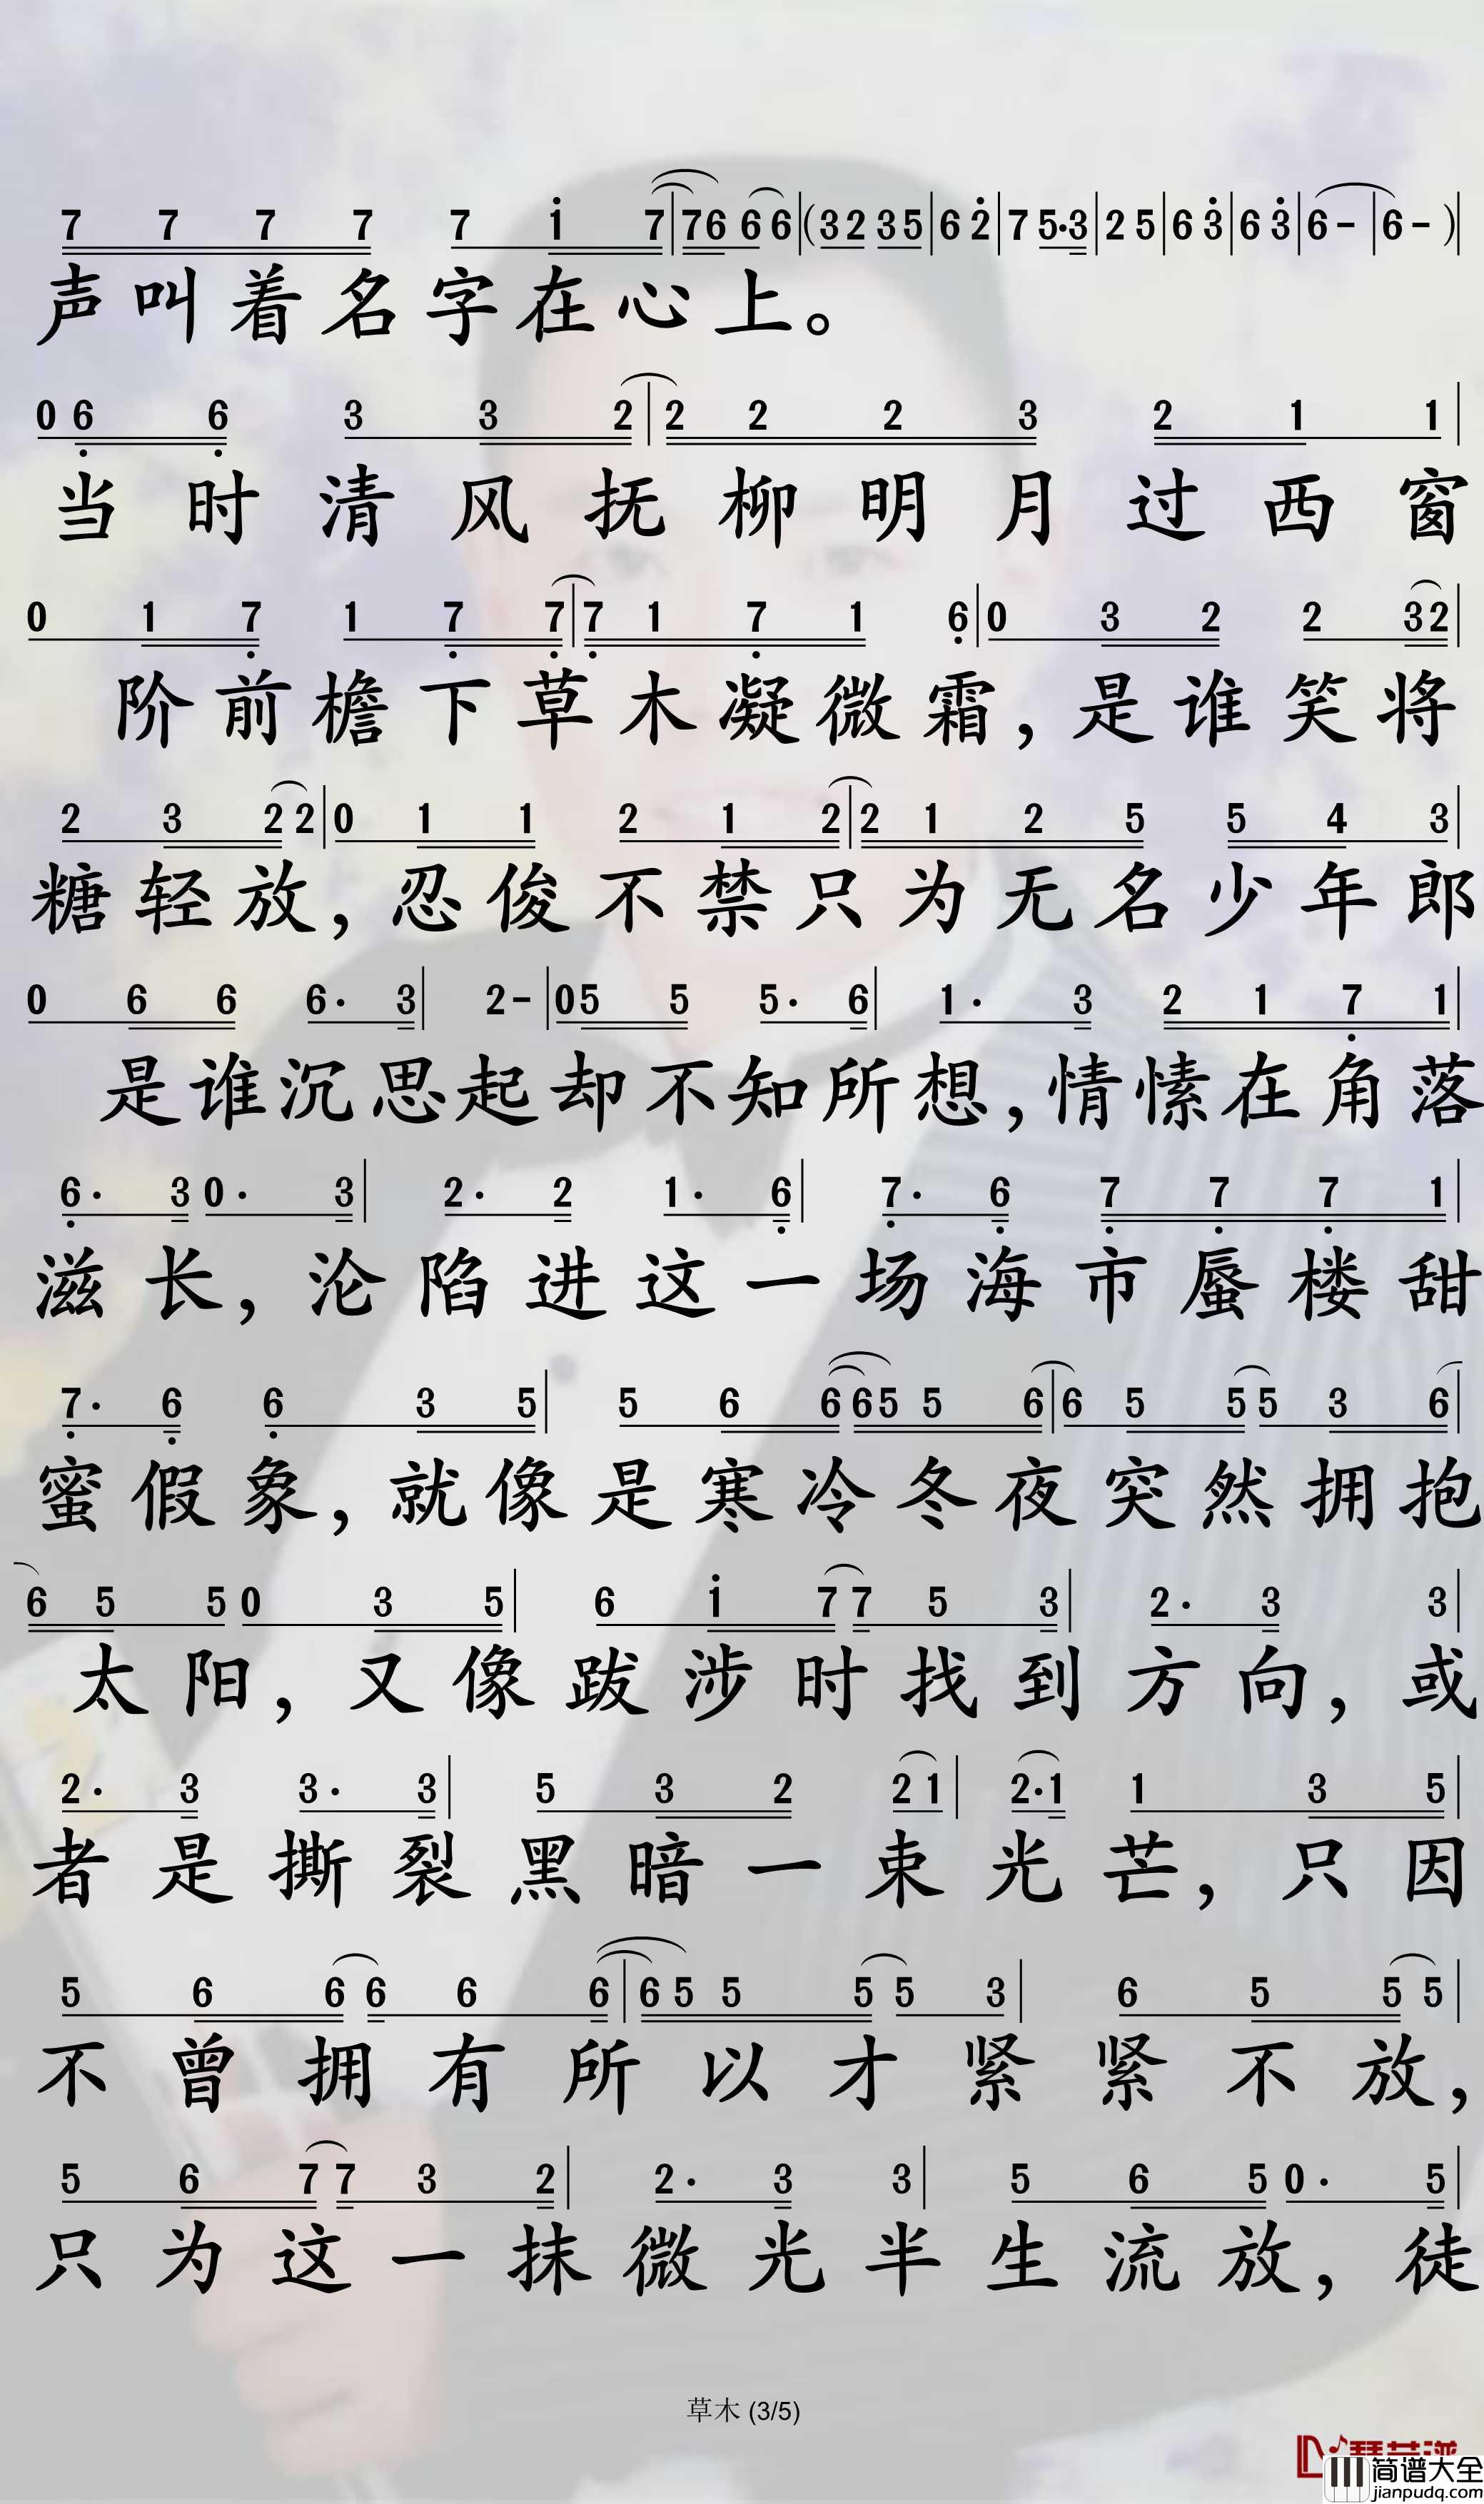 7 7 7 7 7 1 7 | 7 6 6 6 | ( 3 2 3 5 | 6 2 | 7 5 · 3 | 2 5 | 6 3 | 6 3 | 6 – | 6 – ) |
声叫着名字在心上。
0 6 6 3 3 2 | 2 2 2 3 2 1 1 |
当时清风抚柳明月过西窗
0 1 7 1 7 7 | 7 1 7 1 6 | 0 3 2 2 3 2 |
阶前檐下草木凝微霜,是谁笑将
2 3 2 2 | 0 1 1 2 1 2 | 2 1 2 5 5 4 3 |
糖轻放,忍俊不禁只为无名少年郎
0 6 6 6 · 3 | 2 – | 0 5 5 5 · 6 | 1 · 3 2 1 7 1 |
是谁沉思起却不知所想,情愫在角落
6 · 3 0 · 3 | 2 · 2 1 · 6 | 7 · 6 7 7 7 1 |
滋长,沦陷进这一场海市蜃楼甜
7 · 6 6 3 5 | 5 6 6 6 5 5 6 | 6 5 5 5 3 6 |
蜜假象,就像是寒冷冬夜突然拥抱
6 5 5 0 3 5 | 6 1 7 7 5 3 | 2 · 3 3 |
太阳,又像跋涉时找到方向,或
2 · 3 3 · 3 | 5 3 2 2 1 | 2 · 1 1 3 5 |
者是撕裂黑暗一束光芒,只因
5 6 6 6 6 6 | 6 5 5 5 5 3 | 6 5 5 5 |
不曾拥有所以才紧紧不放,
5 6 7 7 3 2 | 2 · 3 3 | 5 6 5 0 · 5 |
只为这一抹微光半生流放,徒
草木 (3/5)
简谱大全
jianpudq.com